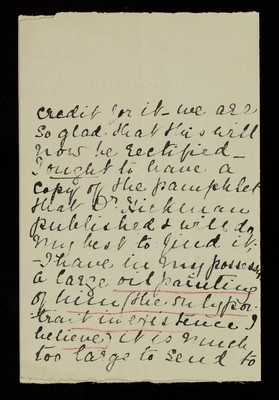 credit for it - we are
so glad that this will
now be rectified -
I ought to have a
copy of the pamphlet
that Dr. Hickman
published & will do
my best to find it -
- I have in my possess
a large oil painting
of him (the only por-
trait in existence I
believe) it is much
too large to send to